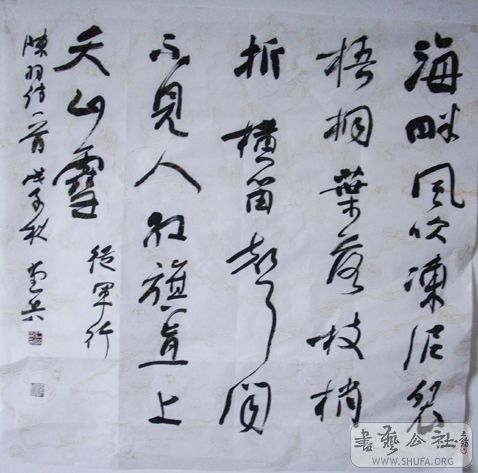 海畔風吹凍泥裂
梧桐葉落枝梢
折橫笛聞
不見人紅旗直上
天山雪
從軍行
陳羽詩一首 戊子秋
書藝公社
WWW.SHUFA.ORG